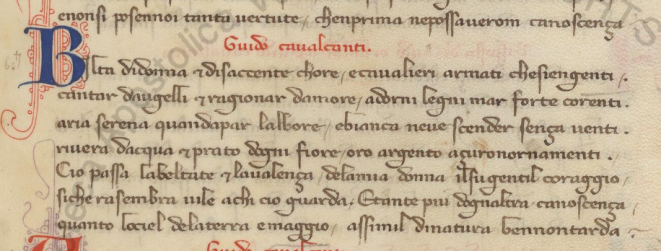 enonsi posennoi tanta vertute, chenprima nepossaverom canoscença
Guido cavalcanti.
Bilta didonna ⁊ disaccente chore, ecavalieri armati chesiengenti.
cantar daugelli ⁊ ragionar damore, adorni legni mar forte corenti.
aria serena quandapar lalbore, ebianca neve scender sença venti.
rivera dacqua ⁊ prato dogni fiore, oro argento açuronornamenti.
Cio passa labeltate ⁊ lavalença delamia donna
siche rasembra vile achi cio guarda, Etante piu dognaltra canoscença,
quanto lociel dela terra emaggio, assimil dinatura bennontarda